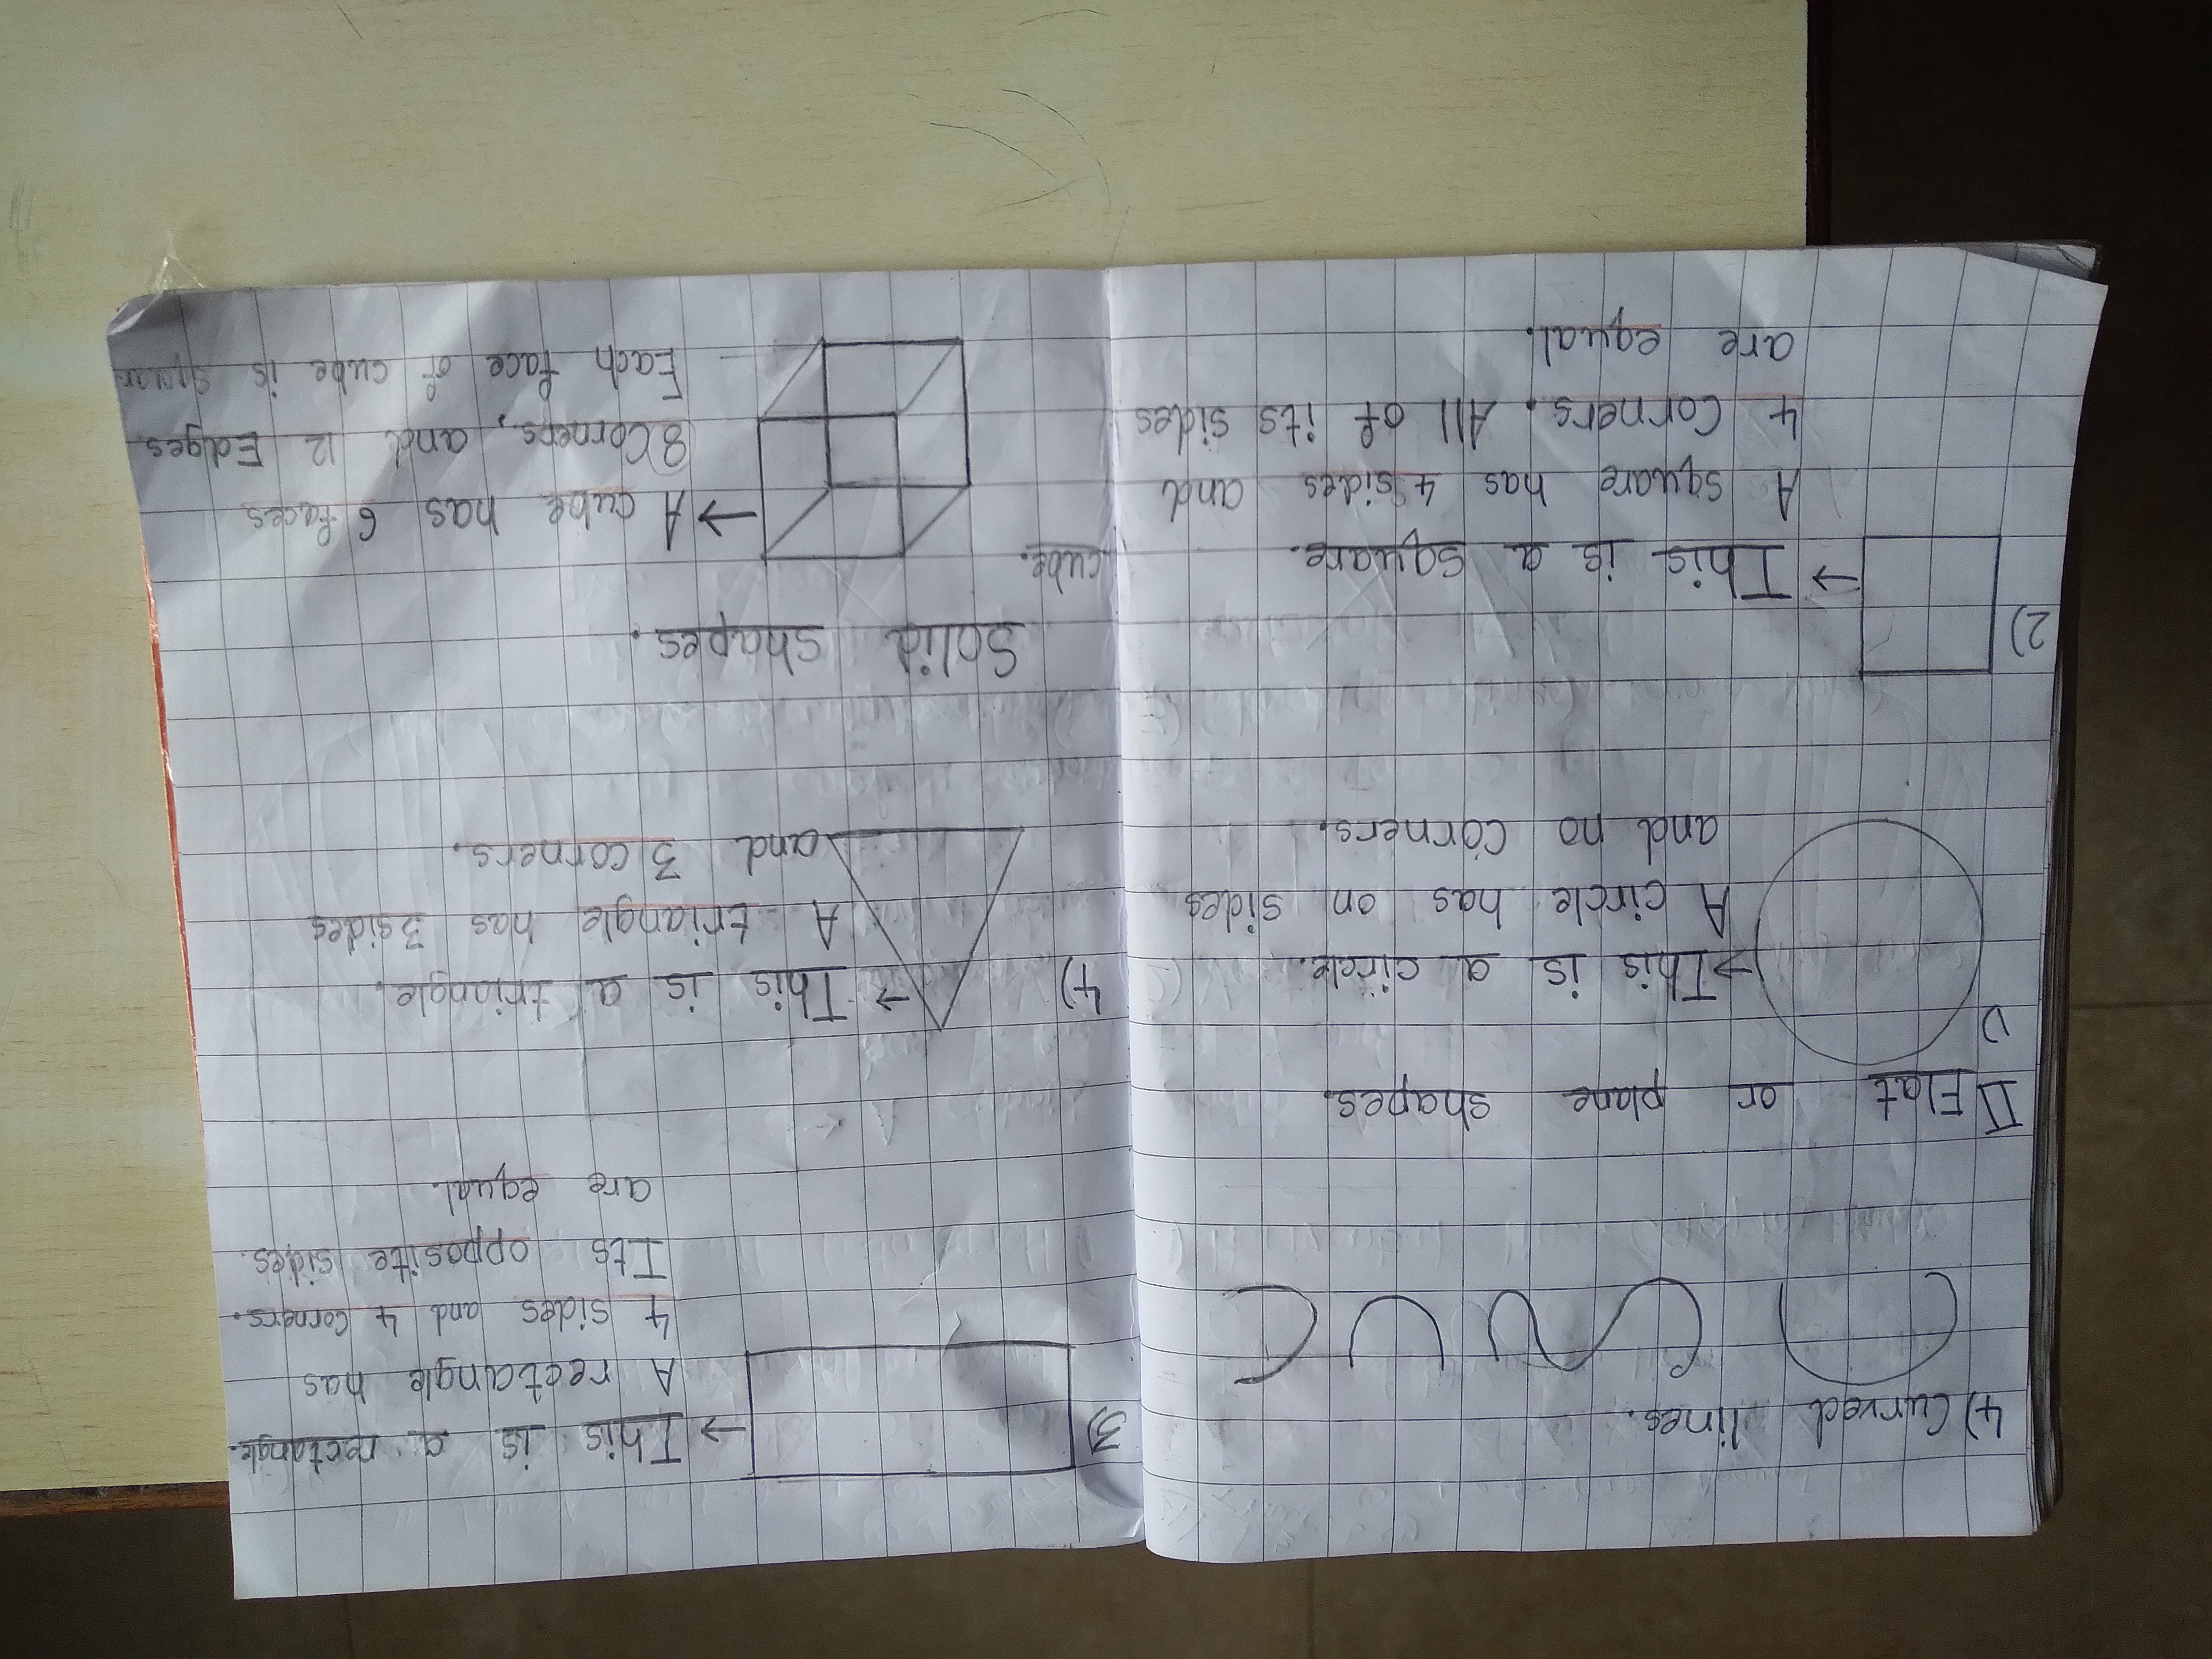 4) Curved lines.
II Flat or plane shapes.
1)
→ This is a circle.
A circle has on sides
and no corners.
2)
→ This is a square.
A square has 4 sides and
4 corners. All of its sides
are equal.
3)
→ This is a rectangle.
A rectangle has
4 sides and 4 corners.
Its opposite sides.
are equal.
4) → This is a triangle.
A triangle has 3 sides
and 3 corners.
Solid shapes.
cube.
→ A cube has 6 faces
8 Corners, and 12 Edges.
Each face of cube is squar